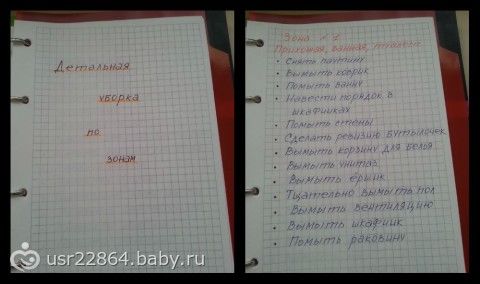 Детальная
уборка
по
зонам
Зона № 1
Прихожая, ванная, туалет
• Снять паутину
• Вымыть коврик
• Помыть ванну
• Навести порядок в
шкафчиках
• Помыть стены
• Сделать ревизию бутылочек
• Вымыть корзину для белья
• Вымыть унитаз
• Вымыть ёршик
• Тщательно вымыть пол
• Вымыть вентиляцию
• Вымыть шкафчик
• Помыть раковину
usr22864.baby.ru